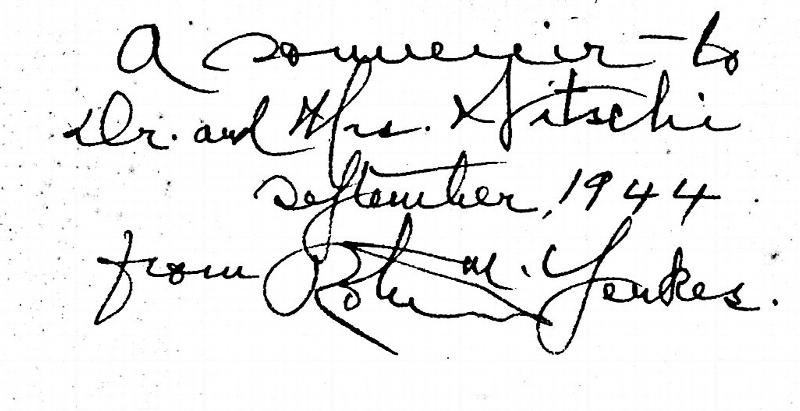 A souvenir to
Dr. and Mrs.
September, 1944
from Robert M. Yerkes.